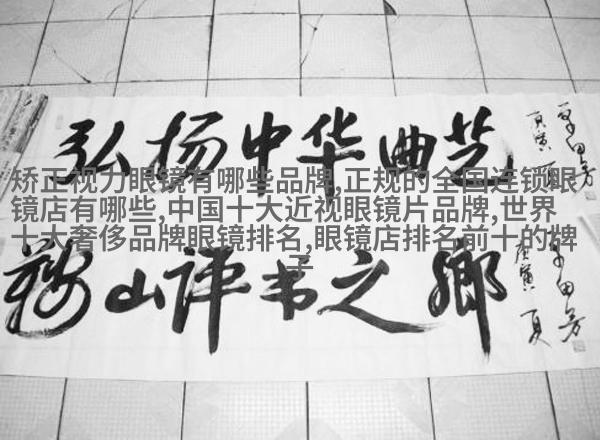 弘扬中华曲艺
鞍山评书之乡
单田芳
庚寅 夏
单田芳
庚寅 夏
矫正视力眼镜有哪些品牌,正规的全国连锁眼
镜店有哪些,中国十大近视眼镜片品牌,世界
十大奢侈品牌眼镜排名,眼镜店排名前十的牌
子